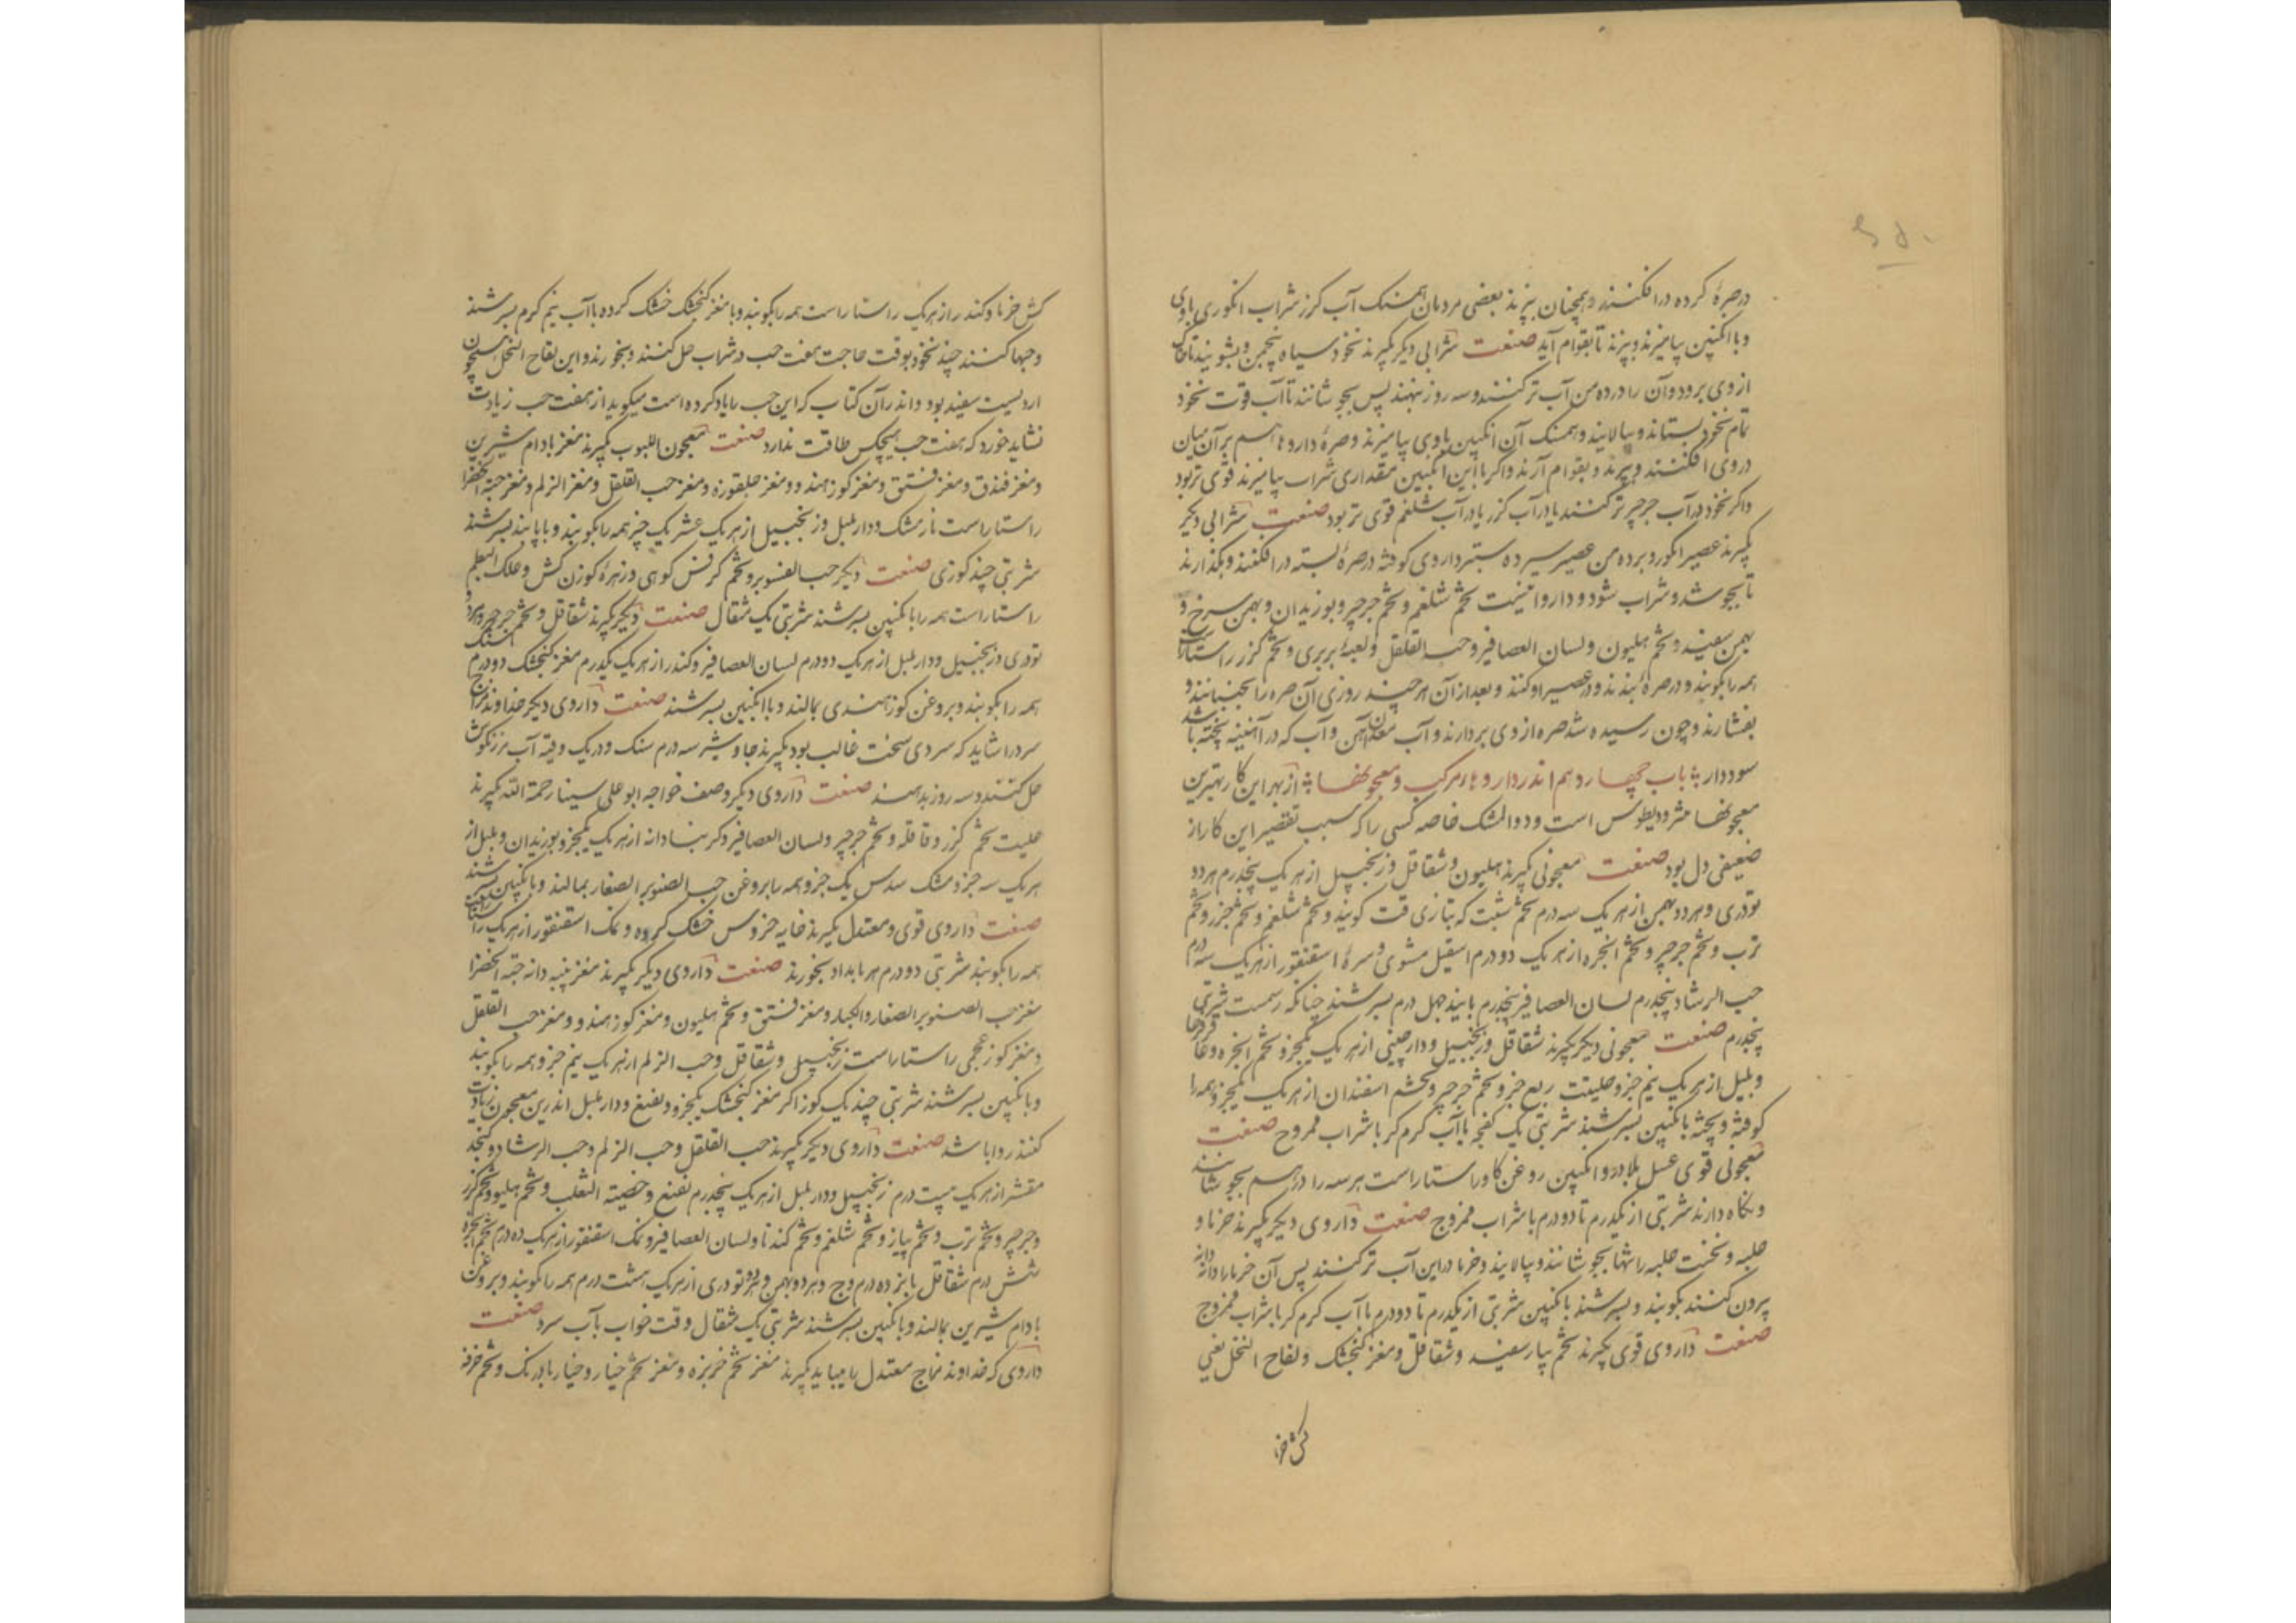 در صرهٔ کرده درافکنند و همچنان بپزند بعضی مردمان همسنک آب کزر شراب انکوری باوی
و با انکبین بیامیزند و بپزند تا بقوام آید صنعت شرابی دیکر بکیرند نخود سیاه پنجمن و بشویند تا خاک
از وی برود و آن را در ده من آب تر کنند و سه روز بنهند پس بجوشانند تا آب قوت نخود
تمام نخود بستاند و بپالایند و همسنک آن انکبین باوی بیامیزند و صرهٔ داروها هم بر آن میان
در وی افکنند و بپزند و بقوام آرند و اکر با این انکبین مقداری شراب بیامیزند قوی تر بود
و اکر نخود در آب جرجیر تر کنند یا در آب کزر یا در آب شلغم قوی تر بود صنعت شرابی دیکر
بکیرند عصیر انکور و بر ده من عصیر سیر داروی کوفته در صرهٔ بسته درافکنند و بکذارند
تا بجوشد و شراب شود و داروا اینست تخم شلغم و تخم جرجیر و بوزیدان و بهمن سرخ و
بهمن سفید و تخم هلیون و لسان العصافیر و حب القلقل و لعبهٔ بربری و تخم کزر راستاراست
همه را بکوبند و در صرهٔ بندند و در عصیر اوکنند و بعد از آن هر چند روزی آن صره را بجنبانند و
بفشارند و چون رسیده شد صره از وی بردارند و آب معدن آهن و آب که در آهنینه پخته باشد
سود دارد باب چهاردهم اندر داروهاء مرکب و معجونها از بهر این کار بهترین
معجونها مثرودیطوس است و دوالمشک خاصه کسی را که سبب تقصیر این کار از
ضعیفی دل بود صنعت معجونی بکیرند هلیون و شقاقل و زنجبیل از هر یک پنجدرم هر دو
تودری و هر دو بهمن از هر یک سه درم تخم شبت که بتازی قت کویند و تخم شلغم و تخم جزر و تخم
ترب و تخم جرجیر و تخم انجره از هر یک دو درم اسقیل مشوی و سرهٔ اسقنقور از هر یک سه درم
حب الرشاد پنجدرم لسان العصافیر پنجدرم بانید چهل درم بسرشند چنانکه رسمست شربتی
پنجدرم صنعت معجونی دیکر بکیرند شقاقل و زنجبیل و دارچینی از هر یک یکجزو تخم انجره و عاقرقرحا
و بلبل از هر یک نیم جزو حلتیت ربع جزو تخم جرجیر و تخم اسفندان از هر یک یکجزو همه را
کوفته و بیخته بانکبین بسرشند شربتی یک کفچه باآب کرم کر باشراب ممزوج صنعت
معجونی قوی عسل بلادر و انکبین روغن کاو راستاراست هر سه را در هم بجوشانند
و نکاه دارند شربتی از یکدرم تا دو درم باشراب ممزوج صنعت داروی دیکر بکیرند خرما و
حلبه و نخست حلبه را تنها بجوشانند و بپالایند و خرما در این آب تر کنند پس آن خرما را دانه دانه
بیرون کنند بکوبند و بسرشند بانکبین شربتی از یکدرم تا دو درم باآب کرم کر باشراب ممزوج
صنعت داروی قوی بکیرند تخم پیاز سفید و شقاقل و مغز کنجشک و لقاح النخل یعنی
کش خرما
کش خرما و کندر از هر یک راستاراست همه را بکوبند و با مغز کنجشک خشک کرده باآب نیم کرم بسرشند
و حبها کنند چند نخود بوقت حاجت هفت حب در شراب حل کنند و بخورند و این لقاح النخل همچون
اردیست سفید بود و اندر آن کتاب که این حب را یاد کرده است میکوید از هفت حب زیادت
نشاید خورد که هفت حب هیچکس طاقت ندارد صنعت معجون اللبوب بکیرند مغز بادام شیرین
و مغز فندق و مغز فستق و مغز کوز هندو و مغز جلقوزه و مغز حب القلقل و مغز الزلم و مغز حبة الخضرا
راستاراست نارمشک و دار بلبل و زنجبیل از هر یک عشر یک جزء همه را بکوبند و با پانید بسرشند
شربتی چند کوزی صنعت دیکر حب الصنوبر و تخم کرفس کوهی و زهرهٔ کوزن کش و علک البطم
راستاراست همه را بانکبین بسرشند شربتی یک مثقال صنعت دیکر بکیرند شقاقل و تخم جرجیر و هر دو
تودری و زنجبیل و دار بلبل از هر یک دو درم لسان العصافیر و کندر از هر یک یکدرم مغز کنجشک دو درم سنک
همه را بکوبند و بروغن کوز هندی بمالند و باانکبین بسرشند صنعت داروی دیکر خداوند مزاج
سرد را شاید که سردی سخت غالب بود بکیرند جاوشیر سه درم سنک و در یک وقیه آب مرزنکوش
حل کنند و سه روز بدهند صنعت داروی دیکر وصف خواجه ابوعلی سینا رحمة الله بکیرند
حلتیت تخم کزر و قاقله و تخم جرجیر و لسان العصافیر و کرنبادانه از هر یک یکجزو بوزیدان و بلبل از
هر یک سه جزو مشک سدس یک جزو همه را بروغن حب الصنوبر الصغار بمالند و بانکبین بسرشند
صنعت داروی قوی و معتدل بکیرند خایه خروس خشک کرده و نمک اسقنقور از هر یک راستاراست
همه را بکوبند شربتی دو درم هر بامداد بخورند صنعت داروی دیکر بکیرند مغز پنبه دانه حبة الخضرا
مغز حب الصنوبر الصغار والکبار و مغز فستق و تخم هلیون و مغز کوز هندو و مغز حب القلقل
و مغز کوز عجمی راستاراست زنجبیل و شقاقل و حب الزلم از هر یک نیم جزو همه را بکوبند
و بانکبین بسرشند شربتی چند یک کوز اکر مغز کنجشک یکجزو و نعنع و دار بلبل اندرین معجون زیادت
کنند روا باشد صنعت داروی دیکر بکیرند حب القلقل و حب الزلم و حب الرشاد و کنجد
مقشر از هر یک بیست درم زنجبیل و دار بلبل از هر یک پنجدرم نعنع و خصیة الثعلب و تخم هلیون و تخم کزر
و جرجیر و تخم ترب و تخم پیاز و تخم شلغم و تخم کندنا و لسان العصافیر و نمک اسقنقور از هر یک ده درم تخم انجره
شش درم شقاقل پانزده درم وج و هر دو بهمن و هر دو تودری از هر یک هشت درم همه را بکوبند و بروغن
بادام شیرین بمالند و بانکبین بسرشند شربتی یک مثقال وقت خواب بآب سرد صنعت
داروی که خداوند مزاج معتدل را میباید بکیرند مغز تخم خربزه و مغز تخم خیار و خیار بادرنک و تخم خرفه